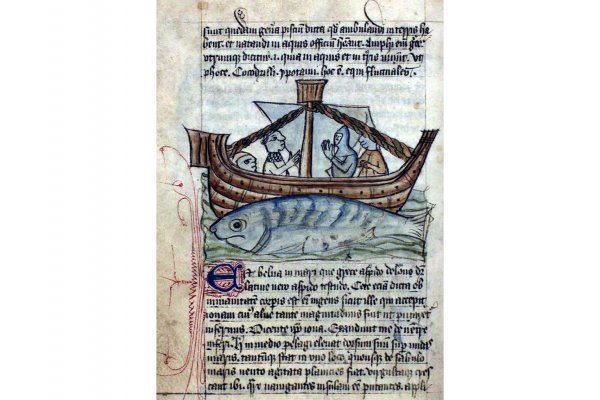 sunt quedam gen̄a pisciū dicta qđ ambulandi in terris ha
bent. et natandi in aquis officiū Amphi em̄
dicitur .i. quia in aquis et in t̄ris uiuūt. Vt
phoce. Cocodrilli. ypotami. hoc ē. equi fluctuales.
Est belua in mari que grece aspido delone dr̄
latine uero aspido testudo. Cete eciā dicta ob
inmanitatē corpis est eī ingens sicut ille qui excepit
ionam cuiꝰ alu tante magnitudinis fuit ut putaret
infernus. Dicente ip̄o iona. Exaudiuit me de uentre
inferi. in medio pelagi eleuat dorsum suū sup undas
maris. stat in uno loco quousque de sabulo
maris uento agitata planicies fiat. cres
cant ibi. nauigantes insulam eē putantes. appli